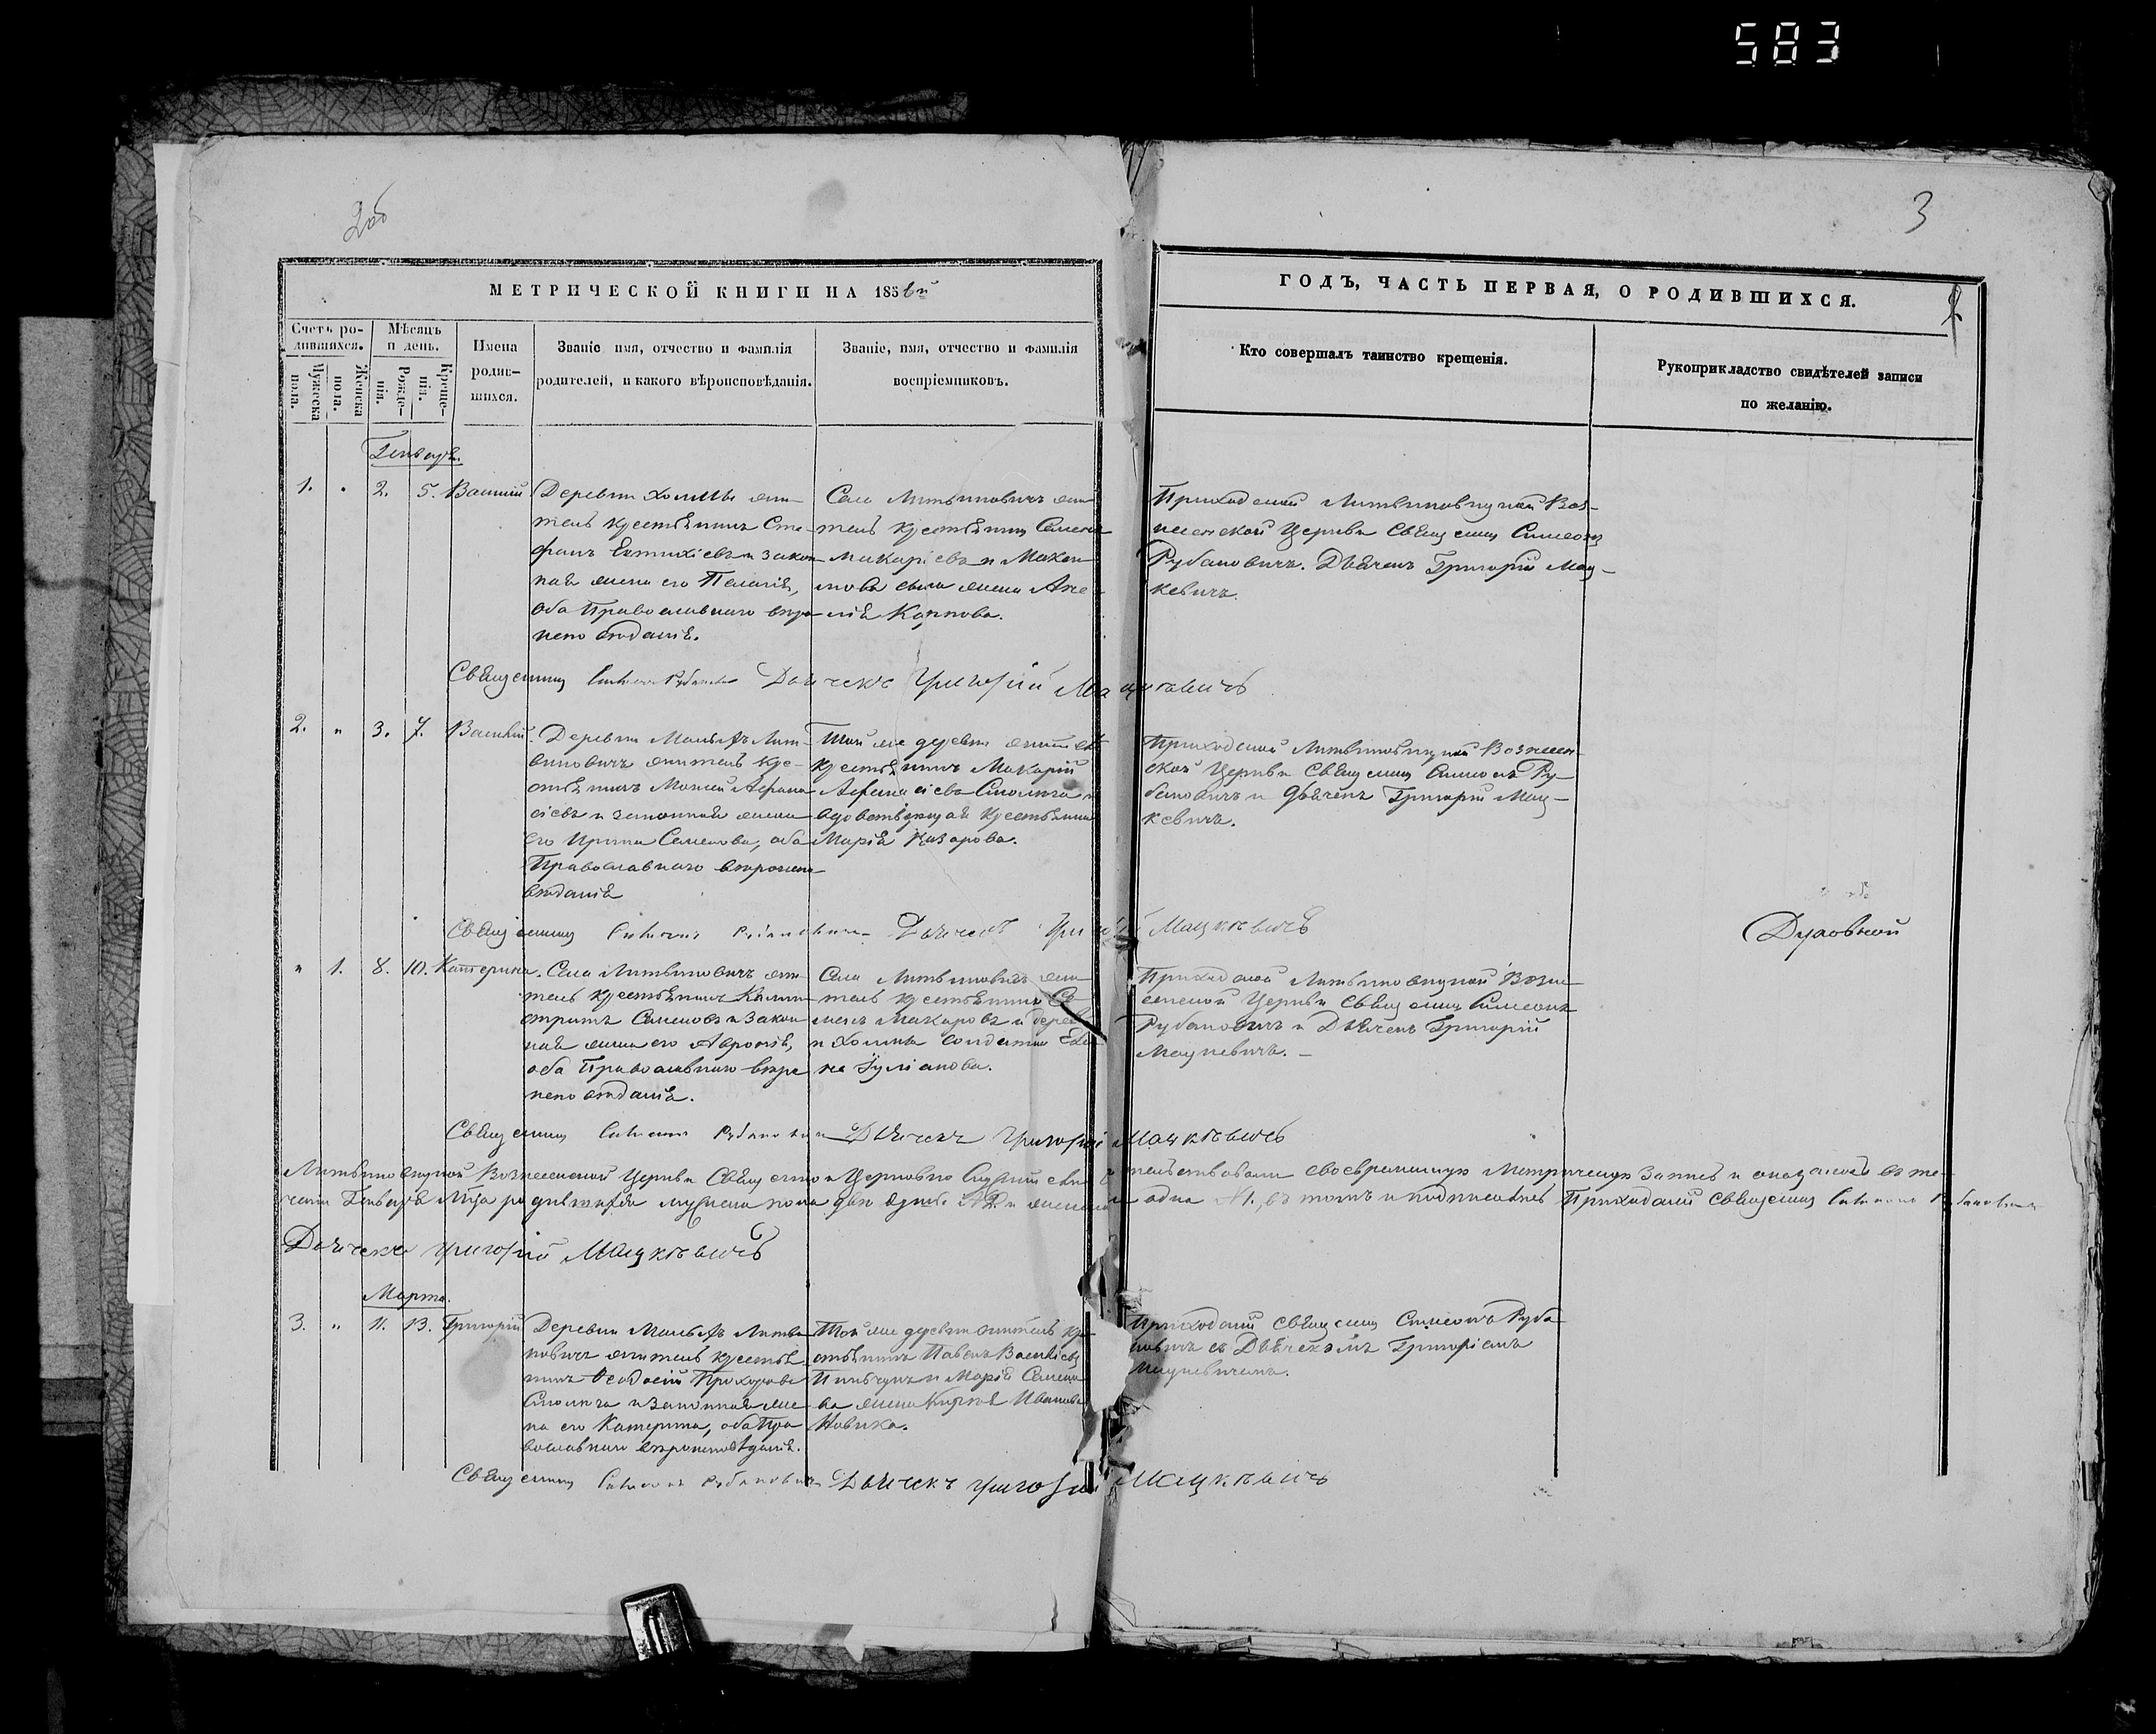 583
2об
3
МЕТРИЧЕСКОЙ КНИГИ НА 1856й
Счетъ ро-
дившихся.
Мужеска
пола.
Женска
пола.
Мѣсяцъ
и день.
Рожде-
нія.
Креще-
нія.
Имена
родив-
шихся.
Званіе имя, отчество и фамилія
родителей, и какого вѣроисповѣданія.
Званіе, имя, отчество и фамилія
воспріемниковъ.
ГОДЪ, ЧАСТЬ ПЕРВАЯ, О РОДИВШИХСЯ.
2.
Кто совершалъ таинство крещенія.
Рукоприкладство свидѣтелей записи
по желанію.
Генварь.
1. " 2. 5. Василій
Деревни Холмы жи-
тель крестьянинъ Сте-
фанъ Евтихіевъ и закон-
ная жена его Пелагія,
оба Православнаго вѣро-
исповѣданія.
Села Литвиновичъ жи-
тель крестьянинъ Семенъ
Макаріевъ и
жена
Карпова.
Приходской Литвиновицкой Воз-
несенской Церкви Священникъ Симеонъ
Рубановичъ. Дьячекъ Григорій Мац-
кевичъ.
Священникъ Симеонъ Рубановичъ Дьячекъ Григорій Мацкевичъ
2. " 3. 7. Василій.
Деревни Малыхъ Лит-
виновичъ житель кре-
стьянинъ Моисей Афана-
сіевъ и законная жена
его Ирина Семенова, оба
Православнаго вѣроиспо-
вѣданія
Той же деревни житель
крестьянинъ Макарій
Афанасіевъ Смоляга и
вдовствующая крестьянка
Марія Назарова.
Приходской Литвиновицкой Вознесен-
ской Церкви Священникъ Симеонъ Ру-
бановичъ и Дьячекъ Григорій Мац-
кевичъ.
Священникъ Симеонъ Рубановичъ Дьячекъ Григорій Мацкевичъ
Духовной
" 1. 8. 10. Катерина.
Села Литвиновичъ жи-
тель крестьянинъ
Семеновъ и закон-
ная жена его Афросія,
оба Православнаго вѣро-
исповѣданія.
Села Литвиновичъ жи-
тель крестьянинъ Се-
менъ Макаровъ и дерев-
ни Холмы солдатка Еле-
на Іуліанова.
Приходской Литвиновицкой Возне-
сенской Церкви Священникъ Симеонъ
Рубановичъ и Дьячекъ Григорій
Мацкевичъ.
Священникъ Симеонъ Рубановичъ Дьячекъ Григорій Мацкевичъ
Литвиновицкой Вознесенской Церкви Священно и Церковно Служители свидѣтельствовали своевременную Метрическую Запись и оказалось въ те-
ченіи Генваря м-ца родившихся мужеска пола двѣ души № 2. и женска одна № 1, въ томъ и подписались Приходской Священникъ Симеонъ Рубановичъ
Дьячекъ Григорій Мацкевичъ
Марта.
3. " 11. 13. Григорій
Деревни Малыхъ Литви-
новичъ житель крестья-
нинъ Феодосій Прохоровъ
Смоляга и законная же-
на его Катерина, оба Пра-
вославнаго вѣроисповѣданія.
Той же деревни житель кре-
стьянинъ Павелъ Василіевъ
и Марія Семено-
ва жена Иванова
Новика.
Приходской Священникъ Симеонъ Руба-
новичъ съ Дьячекомъ Григоріемъ
Мацкевичемъ.
Священникъ Симеонъ Рубановичъ Дьячекъ Григорій Мацкевичъ